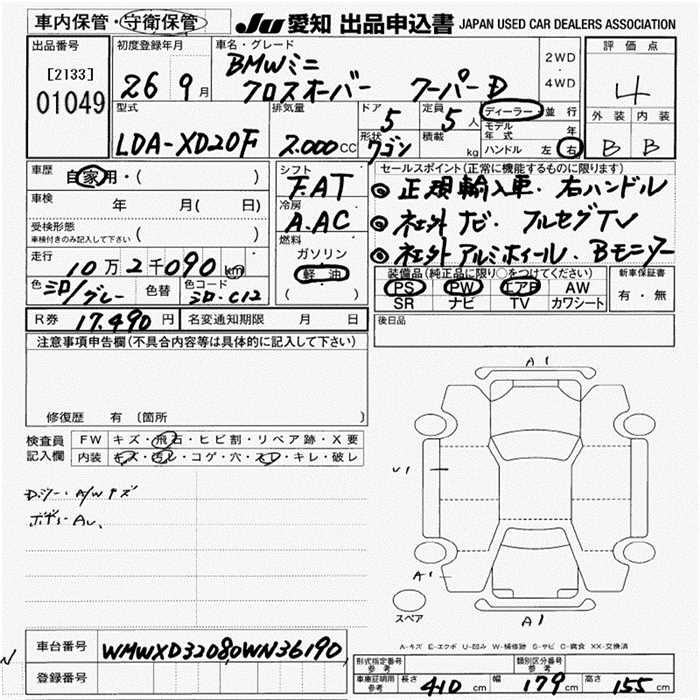 車内保管・守衛保管
JU 愛知 出品申込書 JAPAN USED CAR DEALERS ASSOCIATION
出品番号
[2133]
01049
初度登録年月
26 9月
車名・グレード
BMWミニ
クロスオーバー クーパーD
2WD
・
4WD
評価点
4
外装 内装
B B
型式
LDA-XD20F
排気量
2.000cc
ドア
5
定員
5人
形状
ワゴン
積載
kg
ディーラー・並行
モデル年式 年
ハンドル 左 右
車歴 自家用・( )
車検 年 月( 日)
受検形態
車検付きのみ記入して下さい ( )
走行
10万2千090km
色
ミロ/グレー
色替
色コード
ミロ・C12
シフト
F.AT
冷房
A.AC
燃料
ガソリン
軽油
( )
セールスポイント(正常に機能するものに限ります)
◎ 正規輸入車・右ハンドル
◎ 社外ナビ・フルセグTV
◎ 社外アルミホイール・Bモニター
装備品(純正品に限り○をつけてください)
PS PW エアB AW
SR ナビ TV カワシート
新車保証書
有・無
R券 17.490円
名変通知期限 月 日
後日品
注意事項申告欄(不具合内容等は具体的に記入して下さい)
修復歴 有 〔箇所 〕
検査員
記入欄
FW キズ・飛石・ヒビ割・リペア跡・X要
内装 キズ・汚レ・コゲ・穴・スレ・キレ・破レ
A/Wキズ
A1
U1
A1
A1
スペア
A-キズ E-エクボ U-凹み W-補修跡 S-サビ C-腐食 XX-交換済
車台番号 WMWXD32080WN36190
登録番号
形式指定番号
参考
類別区分番号
参考
車庫証明用
参考
長さ 410cm 幅 179cm 高さ 155cm